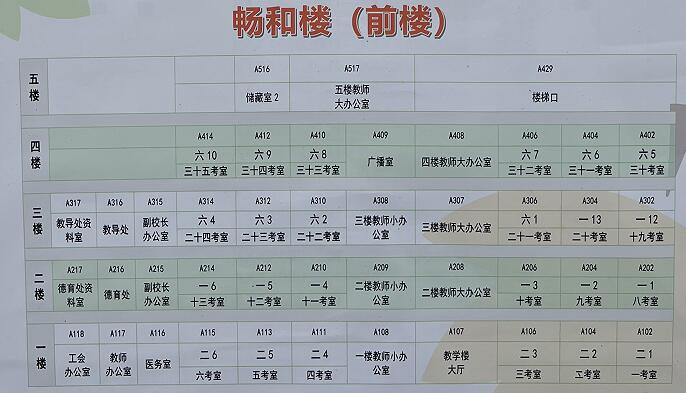 畅和楼（前楼）
五楼
A516 A517 A429
储藏室2 五楼教师大办公室 楼梯口
四楼
A414 A412 A410 A409 A408 A406 A404 A402
六10 六9 六8 广播室 四楼教师大办公室 六7 六6 六5
三十五考室 三十四考室 三十三考室 三十二考室 三十一考室 三十考室
三楼
A317 A316 A315 A314 A312 A310 A308 A307 A306 A304 A302
教导处资料室 教导处 副校长办公室 六4 六3 六2 三楼教师小办公室 三楼教师大办公室 六1 一13 一12
二十四考室 二十三考室 二十二考室 二十一考室 二十考室 十九考室
二楼
A217 A216 A215 A214 A212 A210 A209 A208 A206 A204 A202
德育处资料室 德育处 副校长办公室 一6 一5 一4 二楼教师小办公室 二楼教师大办公室 一3 一2 一1
十三考室 十二考室 十一考室 十考室 九考室 八考室
一楼
A118 A117 A116 A115 A113 A111 A108 A107 A106 A104 A102
工会办公室 教师办公室 医务室 二6 二5 二4 一楼教师小办公室 教学楼大厅 二3 二2 二1
六考室 五考室 四考室 三考室 二考室 一考室